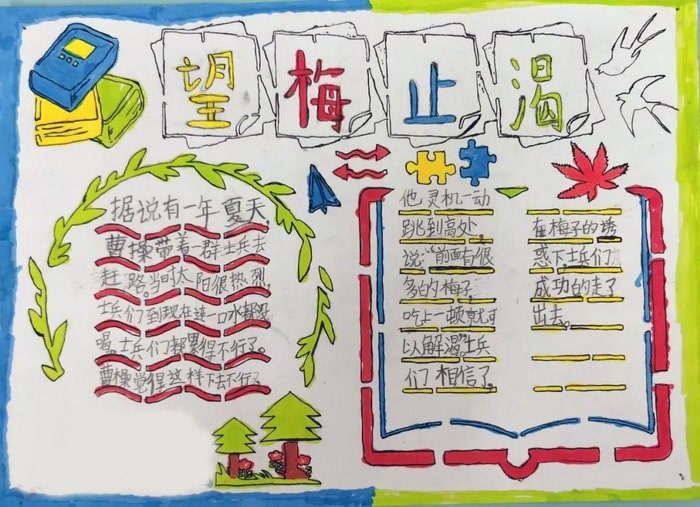 望梅止渴
据说有一年夏天
曹操带着一群士兵去
赶路。当时太阳很热烈，
士兵们到现在连一口水都没
喝，士兵们都累得不行了。
曹操觉得这样下去不行了
他，灵机一动
跳到高处，
说：“前面有很
多的梅子，
吃上一顿就可
以解渴。”士兵
们相信了。
在梅子的诱
惑下，士兵们
成功的走了
出去。